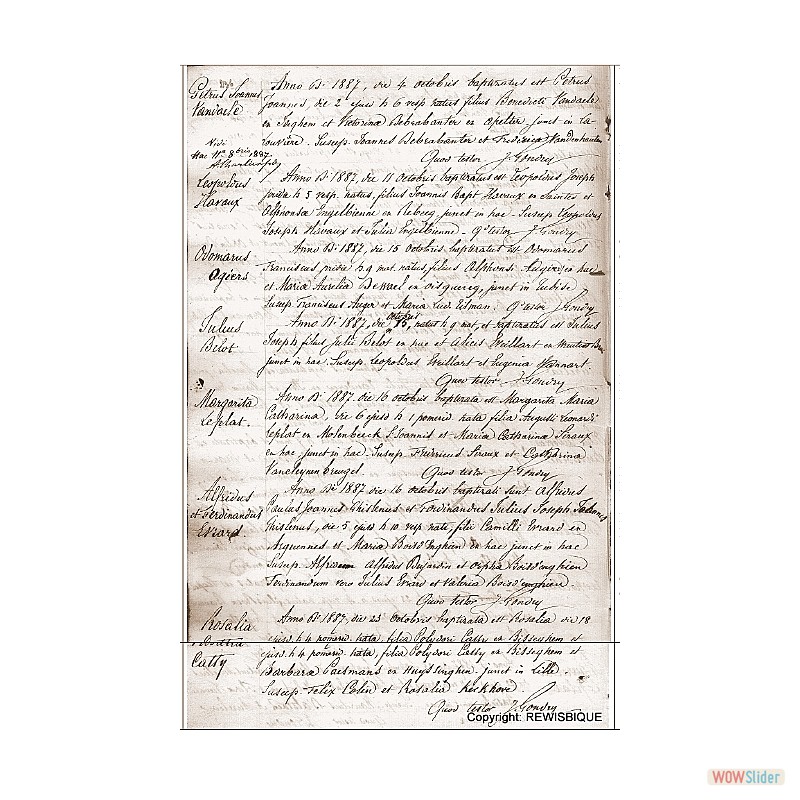 Petrus Joannes
Vandaele
Anno Di 1887, die 4 octobris baptizatus est Petrus
Joannes, die 2 ejusd h 6 vesp natus filius Benedicti Vandaele
en Inghem et Victorina Bebrabanter en opelier, junct in La-
Louvière. Suscep. Joannes Bebrabanter et Frederica Vandenhauten
Quod testor J. Gondry
Vidi
Hac 11a 8bris 1887
Leopoldus
Havaux
Anno Di 1887, die 11 octobris baptizatus est Leopoldus Joseph
pridie h 5 vesp. natus, filius Joannis Bapt Havaux en Saintes et
Alphonsa Engelbienne en Rebecq junct in hac. Suscep Leopoldus
Joseph Havaux et Julia Engelbienne. Qd testor J. Gondry
Odomarus
Ogiers
Anno Di 1887, die 15 octobris baptizatus est Odomarus
Franciscus, pridie h 9 mat. natus, filius Alphonsi en hac
et Maria Aurelia en oisquercq, junct in Tubise.
Suscep Franciscus et Maria Lud. Tilman. Qd testor J. Gondry
Julius
Bilot
Anno Di 1887, die octobris 15, natus h 9 mat, et baptizatus est Julius
Joseph filius Julii Belot en hac et Alicis Weillart en
junct in hac. Suscep. Leopoldus Weillart et Eugenia Hannart.
Quod testor J. Gondry
Margarita
Leplat.
Anno Di 1887 die 16 octobris baptizata est Margarita Maria
Catharina, die 6 ejusd h 1 pomerid. nata filia Augusti Leonardi
Leplat en Molenbeeck St Joannis et Maria Catharina Seraux
en hac junct in hac. Suscep Seraux et Catharina
Quod testor J. Gondry
Alfridus
et Ferdinandus
Evrard
Anno Di 1887 die 16 octobris baptizati sunt Alfridus
Paulus Joannes Ghislenus et Ferdinandus Julius Joseph Joannes
Ghislenus, die 5 ejusd h 10 vesp nati filii Camilli Evrard en
Arquennes et Maria Boisd'Enghien en hac junct in hac
Suscep. Alfridus Dujardin et Boisd'enghien
Ferdinandum vero Julius Evrard et Valeria Boisd'enghien.
Quod testor J. Gondry
Rosalia
Catty
Anno Di 1887, die 23 octobris baptizata est Rosalia die 18
ejusd. h 4 pomerid. nata, filia Polydori Catty en Bisseghem et
ejusd. h 4 pomerid. nata, filia Polydori Catty en Bisseghem et
Barbara Paesmans en Huyssinghen junct in Lille.
Suscep Felix Colin et Rosalia Kerkhove.
Quod testor J. Gondry
Copyright: REWISBIQUE
WOWSlider